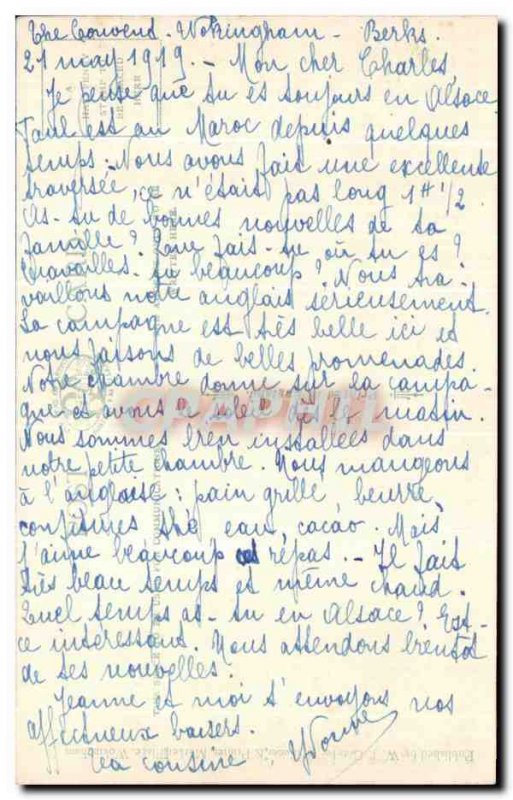 The Convend. Wokingham - Berks.
21 may 1919. - Mon cher Charles,
Je pense que tu es toujours en Alsace
Paul est au Maroc depuis quelques
temps. Nous avons fait une excellente
traversée, ce n'était pas long 1H 1/2.
As-tu de bonnes nouvelles de ta
famille? Que fais-tu où tu es?
Travailles-tu beaucoup? Nous tra-
vaillons notre anglais sérieusement.
La campagne est très belle ici et
nous faisons de belles promenades.
Notre chambre donne sur la campa-
gne et avons le soleil le matin.
Nous sommes bien installées dans
notre petite chambre. Nous mangeons
à l'anglaise: pain grillé beurre,
confitures thé eau, cacao. Mais
j'aime beaucoup repas. - Il fait
très beau temps et même chaud.
Quel temps as-tu en Alsace? Est-
ce interessant. Nous attendons bientot
de tes nouvelles.
Jeanne et moi t'envoyons nos
affectueux baisers.
ta cousine, Yvonne
CARD